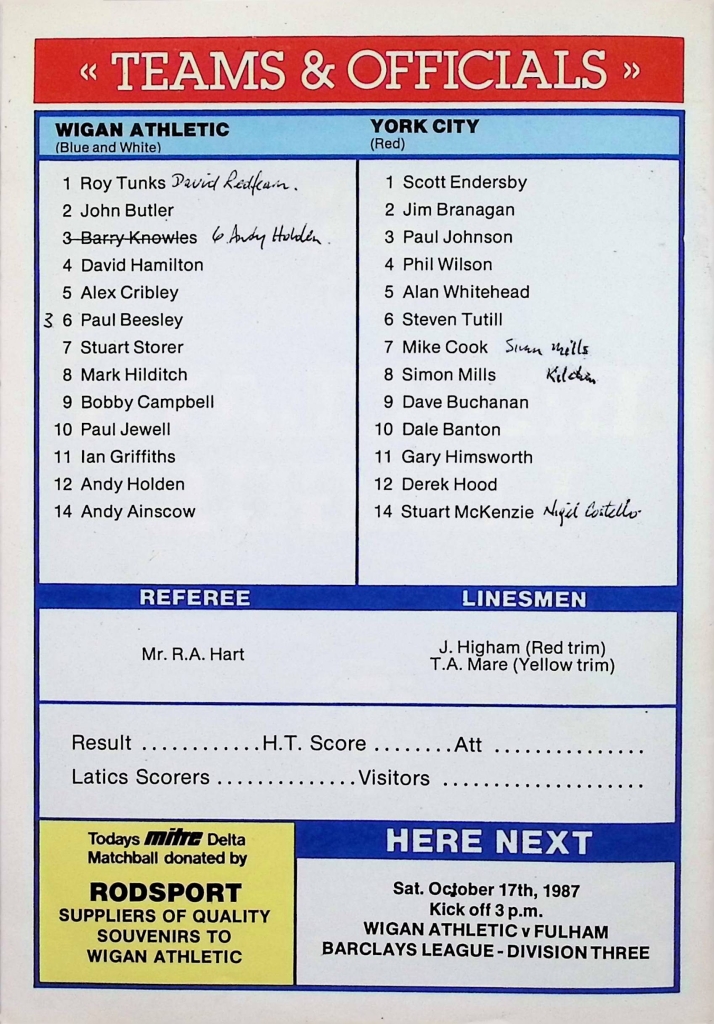 « TEAMS & OFFICIALS »
WIGAN ATHLETIC
(Blue and White)
1 Roy Tunks David Redfearn.
2 John Butler
3 Barry Knowles 6 Andy Holden.
4 David Hamilton
5 Alex Cribley
3 6 Paul Beesley
7 Stuart Storer
8 Mark Hilditch
9 Bobby Campbell
10 Paul Jewell
11 Ian Griffiths
12 Andy Holden
14 Andy Ainscow
YORK CITY
(Red)
1 Scott Endersby
2 Jim Branagan
3 Paul Johnson
4 Phil Wilson
5 Alan Whitehead
6 Steven Tutill
7 Mike Cook Simon Mills
8 Simon Mills
9 Dave Buchanan
10 Dale Banton
11 Gary Himsworth
12 Derek Hood
14 Stuart McKenzie Nigel Costello
REFEREE
Mr. R.A. Hart
LINESMEN
J. Higham (Red trim)
T.A. Mare (Yellow trim)
Result ............H.T. Score ........Att ...............
Latics Scorers ..............Visitors ....................
Todays mitre Delta
Matchball donated by
RODSPORT
SUPPLIERS OF QUALITY
SOUVENIRS TO
WIGAN ATHLETIC
HERE NEXT
Sat. October 17th, 1987
Kick off 3 p.m.
WIGAN ATHLETIC v FULHAM
BARCLAYS LEAGUE - DIVISION THREE